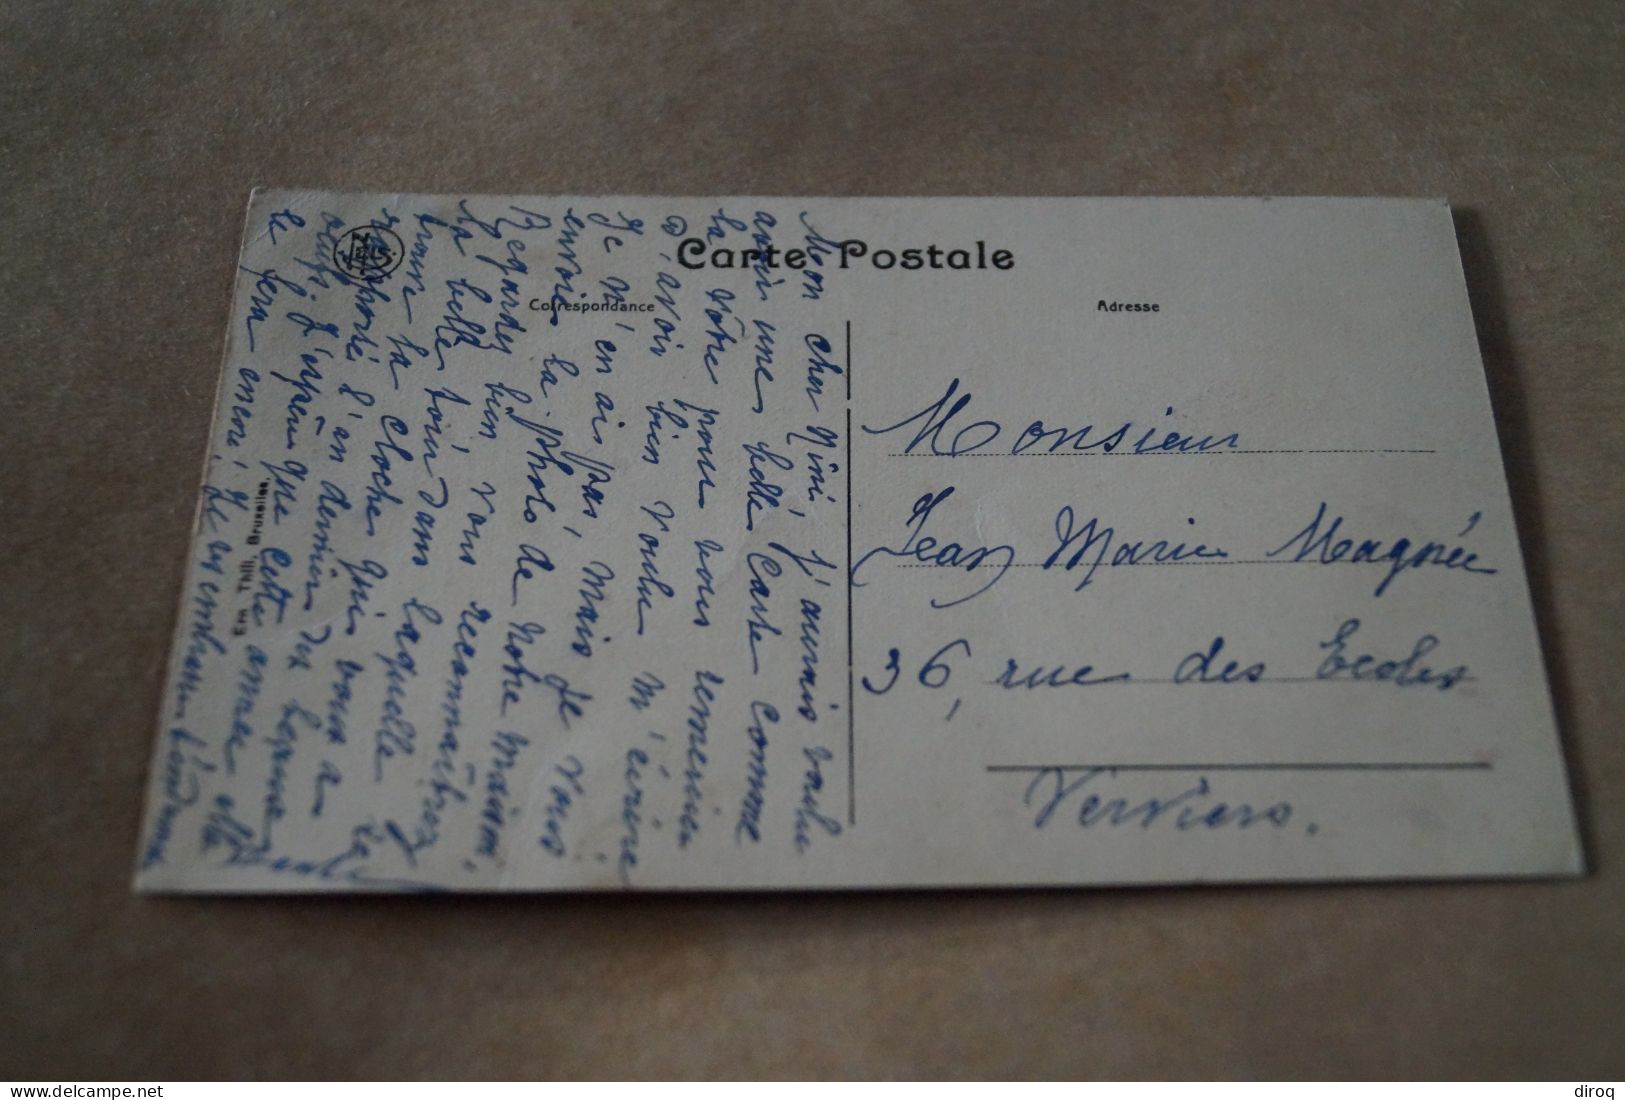 Carte Postale
Correspondance
Adresse
Mon cher Nini, j'aurais voulu
avoir une belle Carte comme
la vôtre pour vous remercier
d'avoir bien voulu m'écrire
Je n'en ais pas, mais je vous
envoie la photo de notre maison.
Regardez bien, vous reconnaîtrez
la belle tour dans laquelle
trouver la cloche qui vous a
rapporté l'an dernier du
œufs. J'espère que cette année elle
le fera encore. Je vous embrasse
Monsieur
Jean Marie Magnée
36, rue des Ecoles
Verviers.
Ern. Thill, Bruxelles.
NELS
delcampe.net
diroq